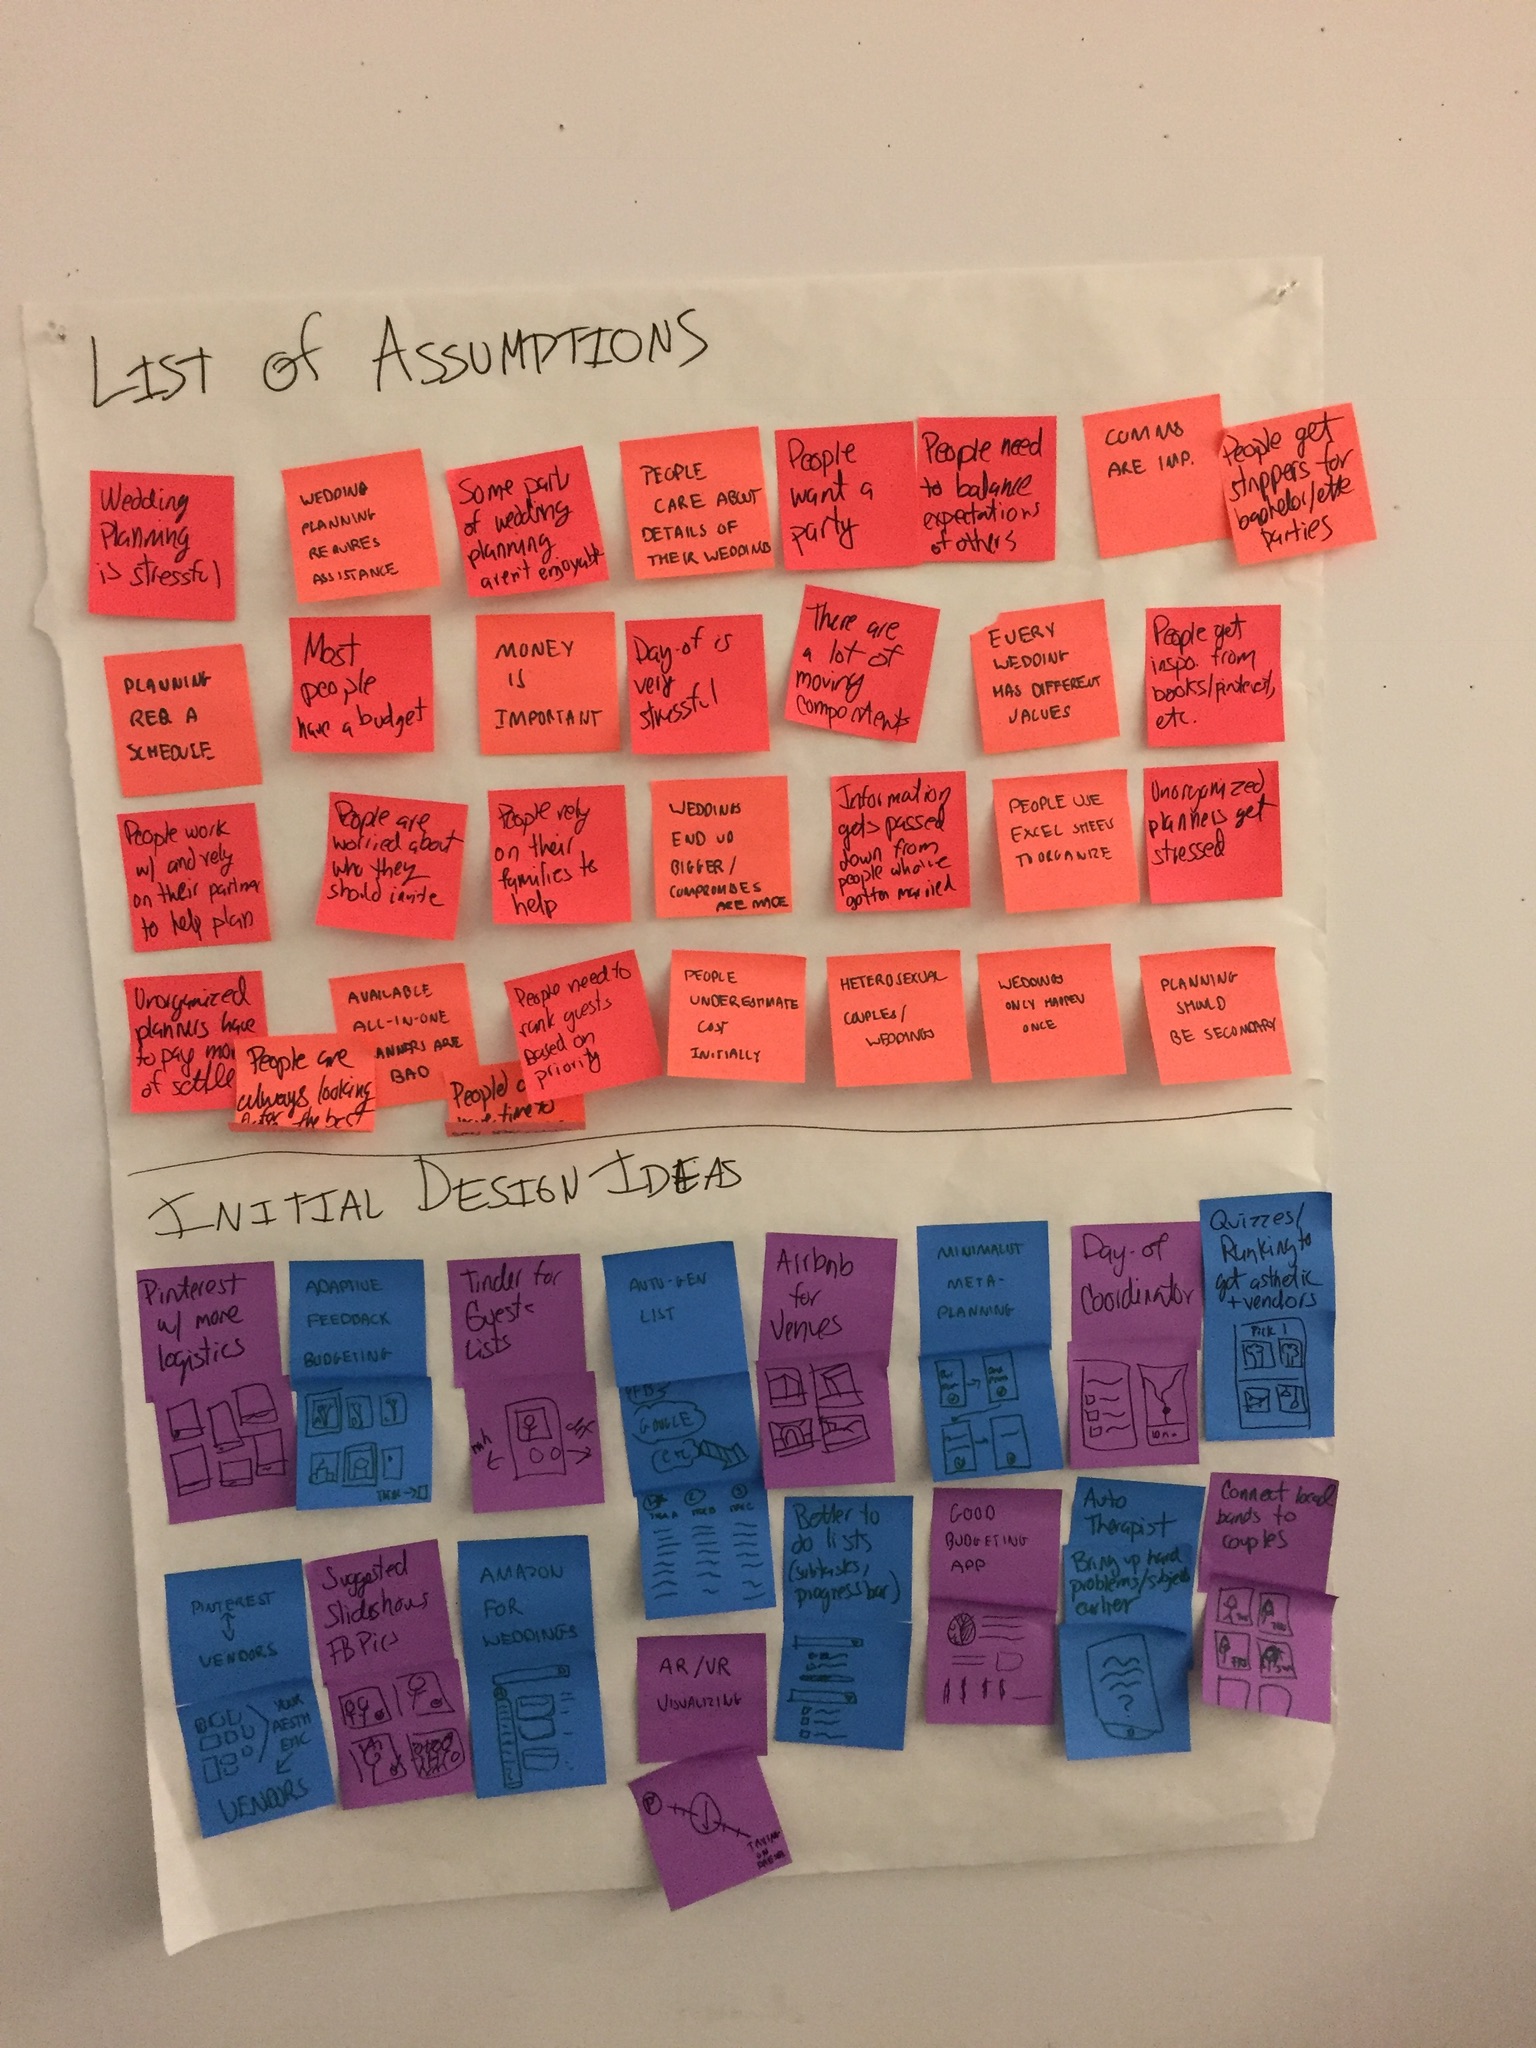 LIST of ASSUMPTIONS
Wedding
Planning
is stressful
WEDDING
PLANNING
REQUIRES
ASSISTANCE
Some part
of wedding
planning
aren't enjoyable
PEOPLE
CARE ABOUT
DETAILS OF
THEIR WEDDING
People
want a
party
People need
to balance
expectations
of others
COMMS
ARE IMP.
People get
strippers for
bachelor/ette
parties
PLANNING
REQ A
SCHEDULE
Most
people
have a budget
MONEY
IS
IMPORTANT
Day-of is
very
stressful
There are
a lot of
moving
components
EVERY
WEDDING
HAS DIFFERENT
VALUES
People get
inspo. from
books/pinterest,
etc.
People work
w/ and rely
on their partner
to help plan
People are
worried about
who they
should invite
People rely
on their
families to
help
WEDDINGS
END UP
BIGGER/
COMPROMISES
ARE MADE
Information
gets passed
down from
people who've
gotten married
PEOPLE USE
EXCEL SHEETS
TO ORGANIZE
Unorganized
planners get
stressed
Unorganized
planners have
to pay mo
of settle
People are
always looking
for the best
AVAILABLE
ALL-IN-ONE
ANNERS ARE
BAD
People
time to
People need to
rank guests
based on
priority
PEOPLE
UNDERESTIMATE
COST
INITIALLY
HETEROSEXUAL
COUPLES/
WEDDINGS
WEDDINGS
ONLY HAPPEN
ONCE
PLANNING
SHOULD
BE SECONDARY
INITIAL DESIGN IDEAS
Pinterest
w/ more
logistics
ADAPTIVE
FEEDBACK
BUDGETING
Tinder for
Guest
Lists
AUTO-GEN
LIST
GOOGLE
ETC
Airbnb
for
Venues
MINIMALIST
META-
PLANNING
Day-of
Coordinator
Quizzes/
Ranking to
get asthetic
+ vendors
Pick 1
PINTEREST
VENDORS
YOUR
AESTH
ETIC
VENDORS
Suggested
Slideshows
FB Pics
AMAZON
FOR
WEDDINGS
AR/VR
VISUALIZING
Better to
do lists
(subtasks,
progress bar)
GOOD
BUDGETING
APP
$ $ $ $
Auto
Therapist
Bring up hard
problems/subjects
earlier
?
Connect local
bands to
couples